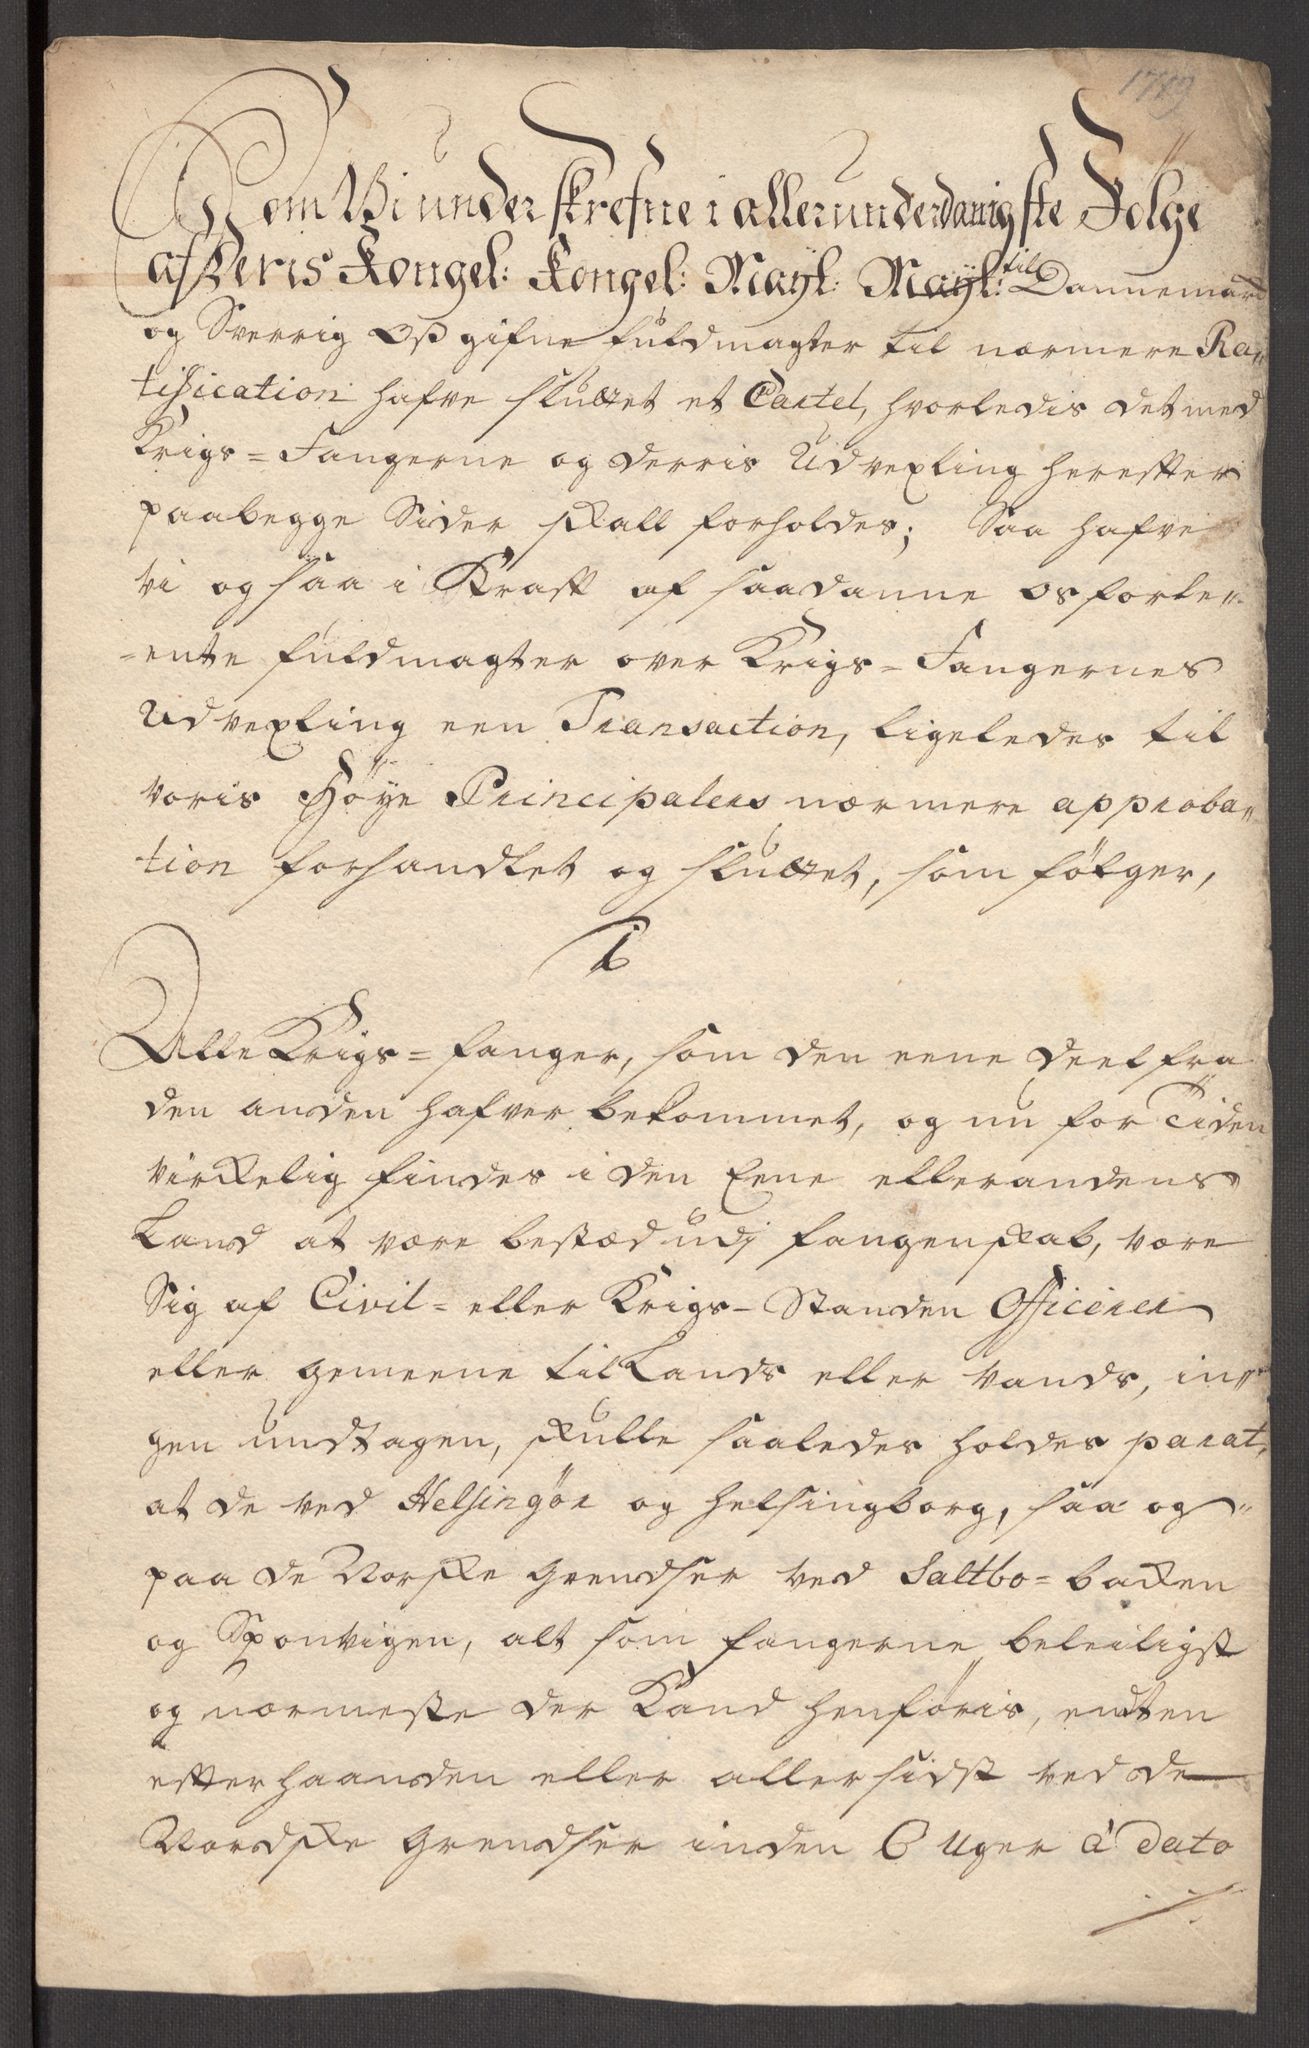 1719
Som Vi underskrefne i allerunderdanigste Folge
af Deris Kongel: Kongel: Mayt: Mayt: til Dannemark
og Sverrig Oss gifne fuldmagter til nærmere Ra„
tification hafve sluttet et Cartel, hvorledis det med
Krigs=Fangerne og derris Udvexling herefter
paa begge Sider skall forholdes; Saa hafve
vi og saa i Kraft af saadanne os forle„
=ente fuldmagter over Krigs=Fangernes
Udvexling een Transaction, ligeledes til
voris Höye Principalers nærmere approba„
tion forhandlet og sluttet, som fölger,
1
Alle Krigs=fanger, som den eene deel fra
den anden hafver bekommet, og nu for Tiden
virkelig findes i den Eene eller andens
Land at være bestæd udj fangenskab, være
Sig af Civil= eller Krigs=Standen Officerer
eller gemeene til Lands eller Vands, in„
gen undtagen, skulle saaledes holdes parat,
at de ved Helsingör og Helsingborg, saa og
paa de Norske Grendser ved Saltbo=backen
og Sponvigen, alt som fangerne beleiligst
og nærmeste der Kand henföris, endten
efterhaanden eller allersidst ved de
Nordske Grendser inden 6 Uger à dato